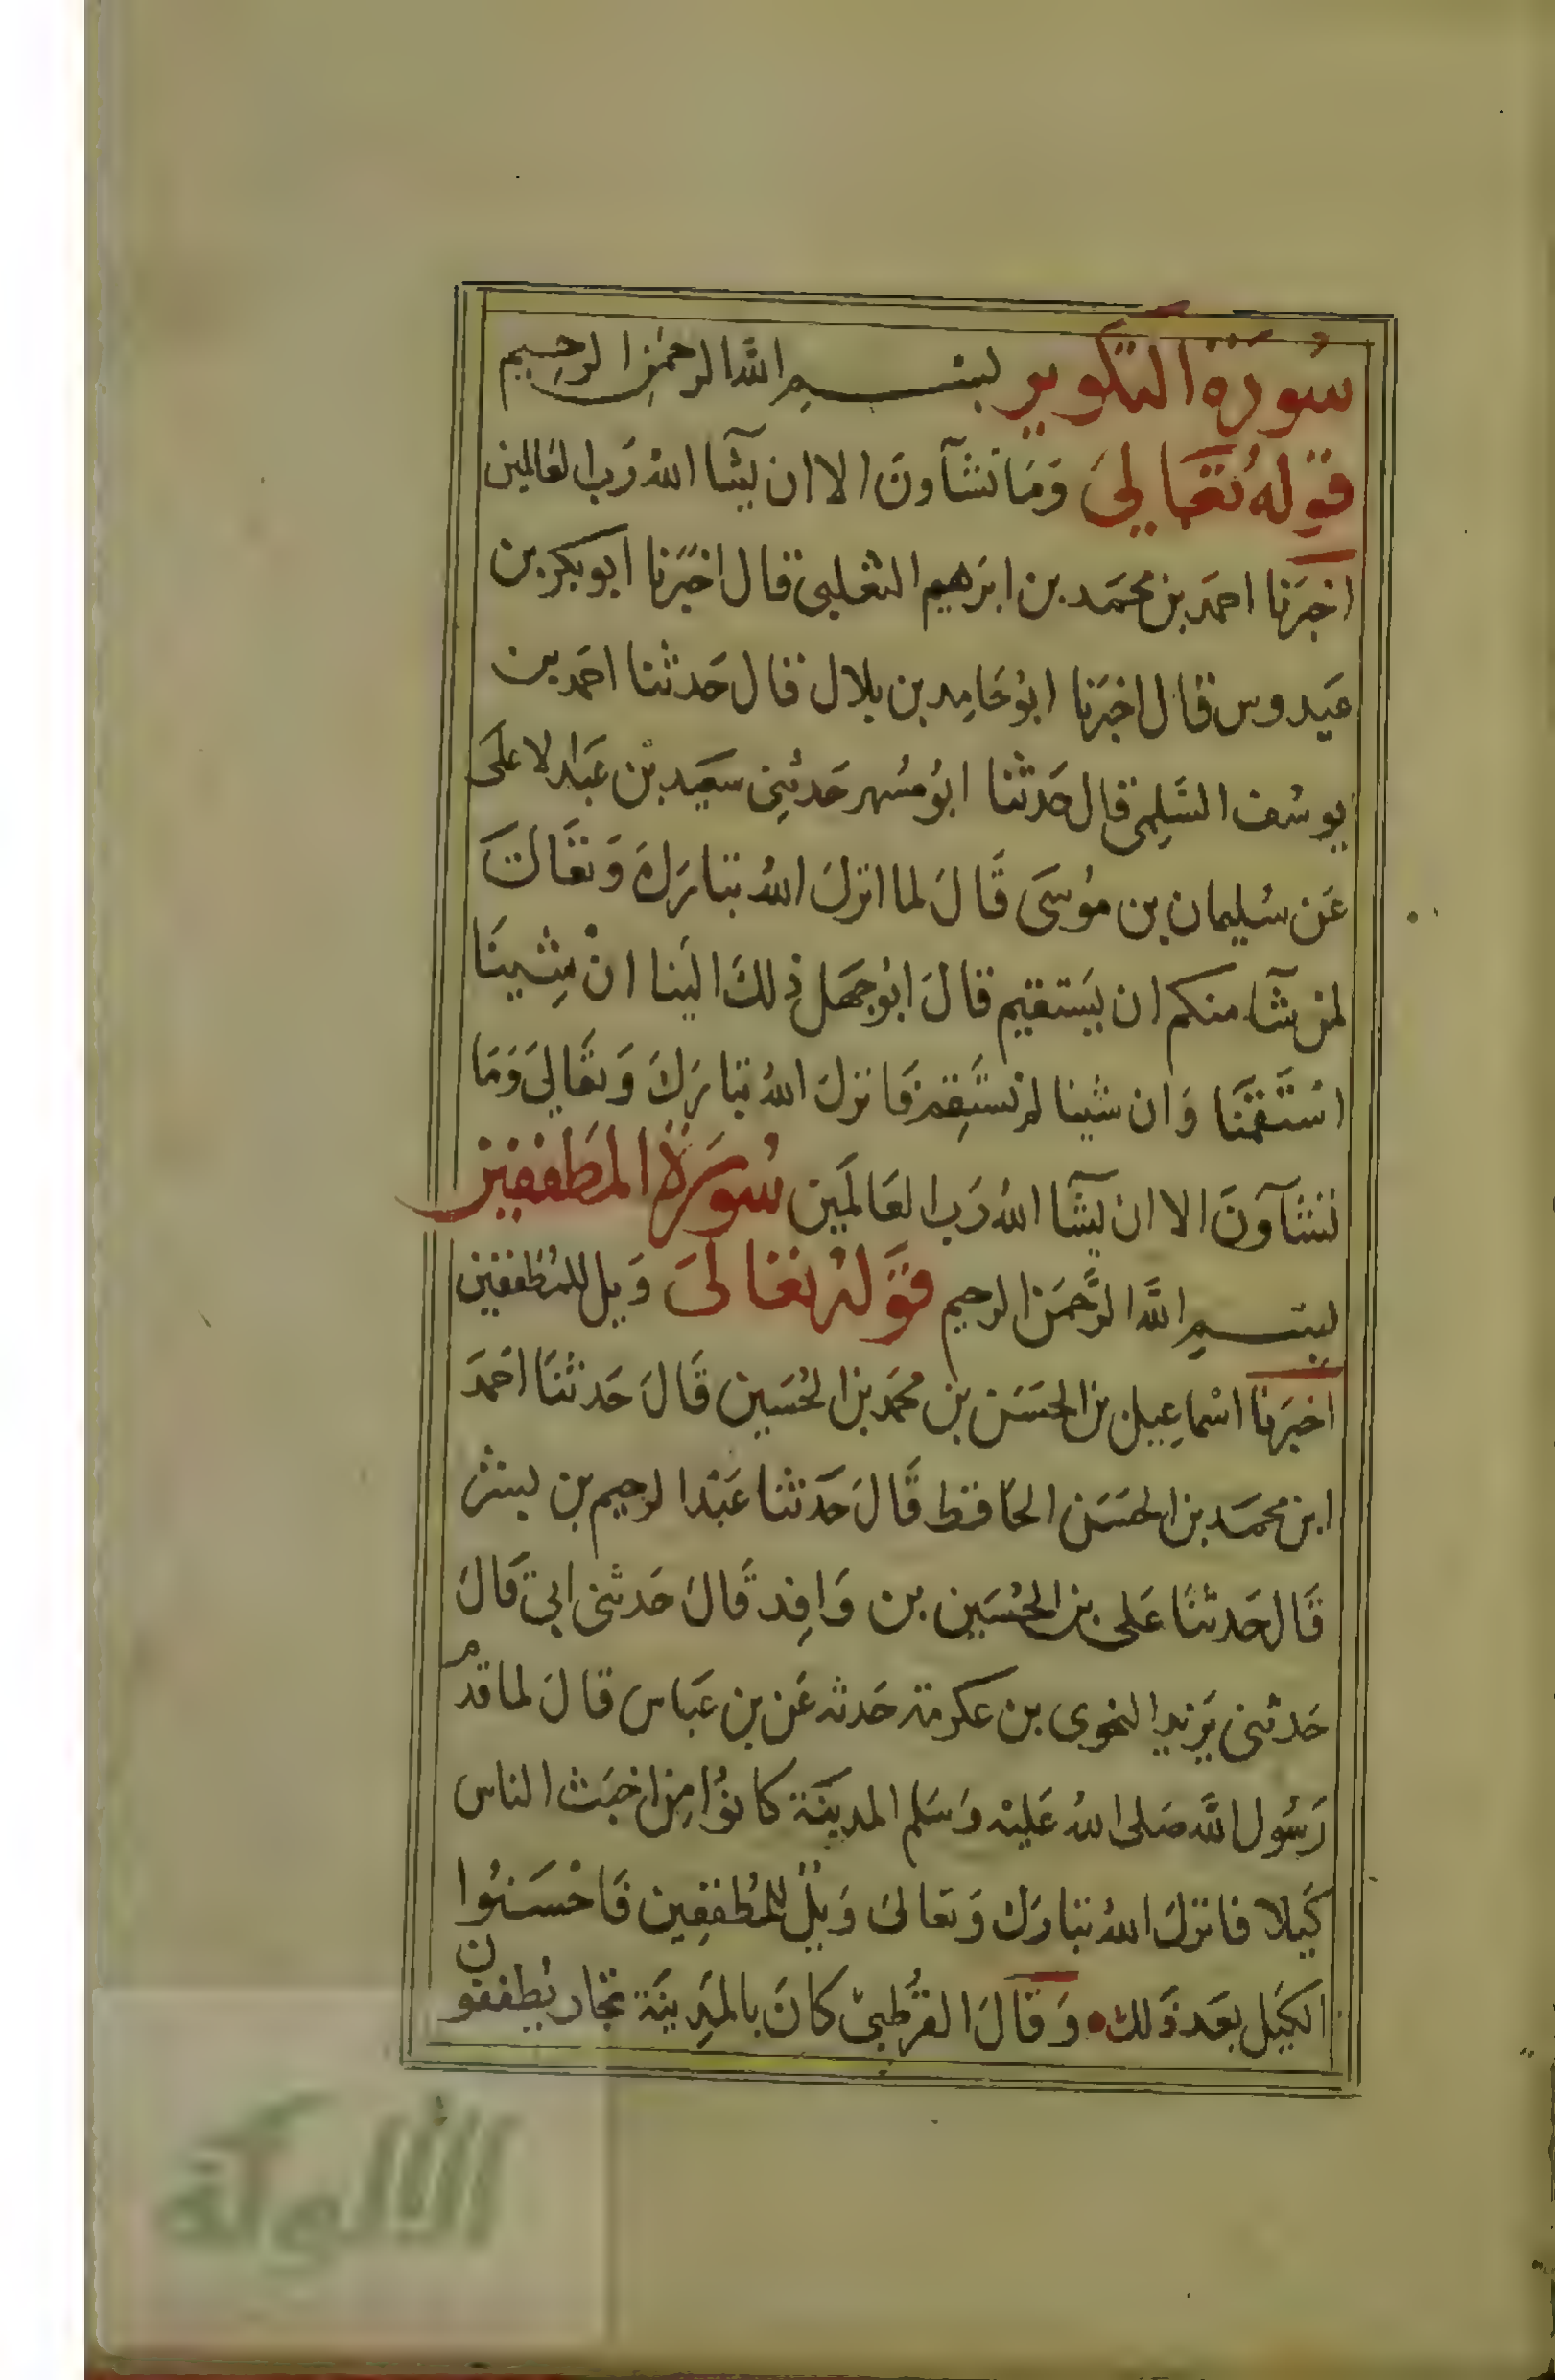 سُورَة التكوير بسم الله الرحمن الرحيم
قوله تعَالىَ وَمَا تشَآونَ الا ان يشَآ الله رَب العَالمين
اخبَرَنا احمَد بن محمَد بن ابرَهيم الثعلبى قال اخبَرَنا ابو بكر بن
عَبدوس قال اخبَرَنا ابوُ حَامِد بن بلال قال حَدثنا احمَد بن
يوسُف السَلِمى قال حَدثنا ابوُ مسُهر حَدثنِى سَعيَد بْن عَبَد الاعلَى
عَن سُليمان بن موُسَى قَالَ لما انزلَ اللهُ تبَارَكَ وَتعَالَى
لمن شآء منكم ان يَستقيم قالَ ابوُ جَهَل ذِلكَ الَينا انْ شِينَا
اسْتَقمَنَا وَان شينا لم نَستَقِم فَانزلَ اللهُ تبَارَكَ وَتعَالىَ وَمَا
تشَآونَ الا ان يشَآ اللهُ رَب العَالمَين سُورَة المَطففين
بسم اللَّه الرَّحمَن الرحيم قوَله تعَالىَ وَيل للمُطففين
اخبَرَنا اسْماعِيل بن الحسَن بن محمَد بن الحُسَين قَالَ حَدثنَا احَمدَ
ابن محمَد بن الحسَن الحَافظ قَالَ حَدثنا عَبْد الرحيم بن بشر
قَال حَدثنَا عَلى بن الحُسَين بن وَافِد قَالَ حَدثنى ابى قَالَ
حَدثنى يَزيد النحوى بن عكرمة حَدثه عَن بن عَباس قالَ لما قدم
رَسُول الله صَلى اللهُ عَليْه وَسَلم المدينَة كانوُا مِن اخبَث الناس
كَيلا فانزلَ اللهُ تبَارَك وَتعالىَ وَيْلٌ للمُطففِين فَاحْسَنوُا
الكيَل بعَد ذَلك وَقَالَ القرُطبىْ كانَ بالمدِينَة تجَار يُطففون
الألوكة